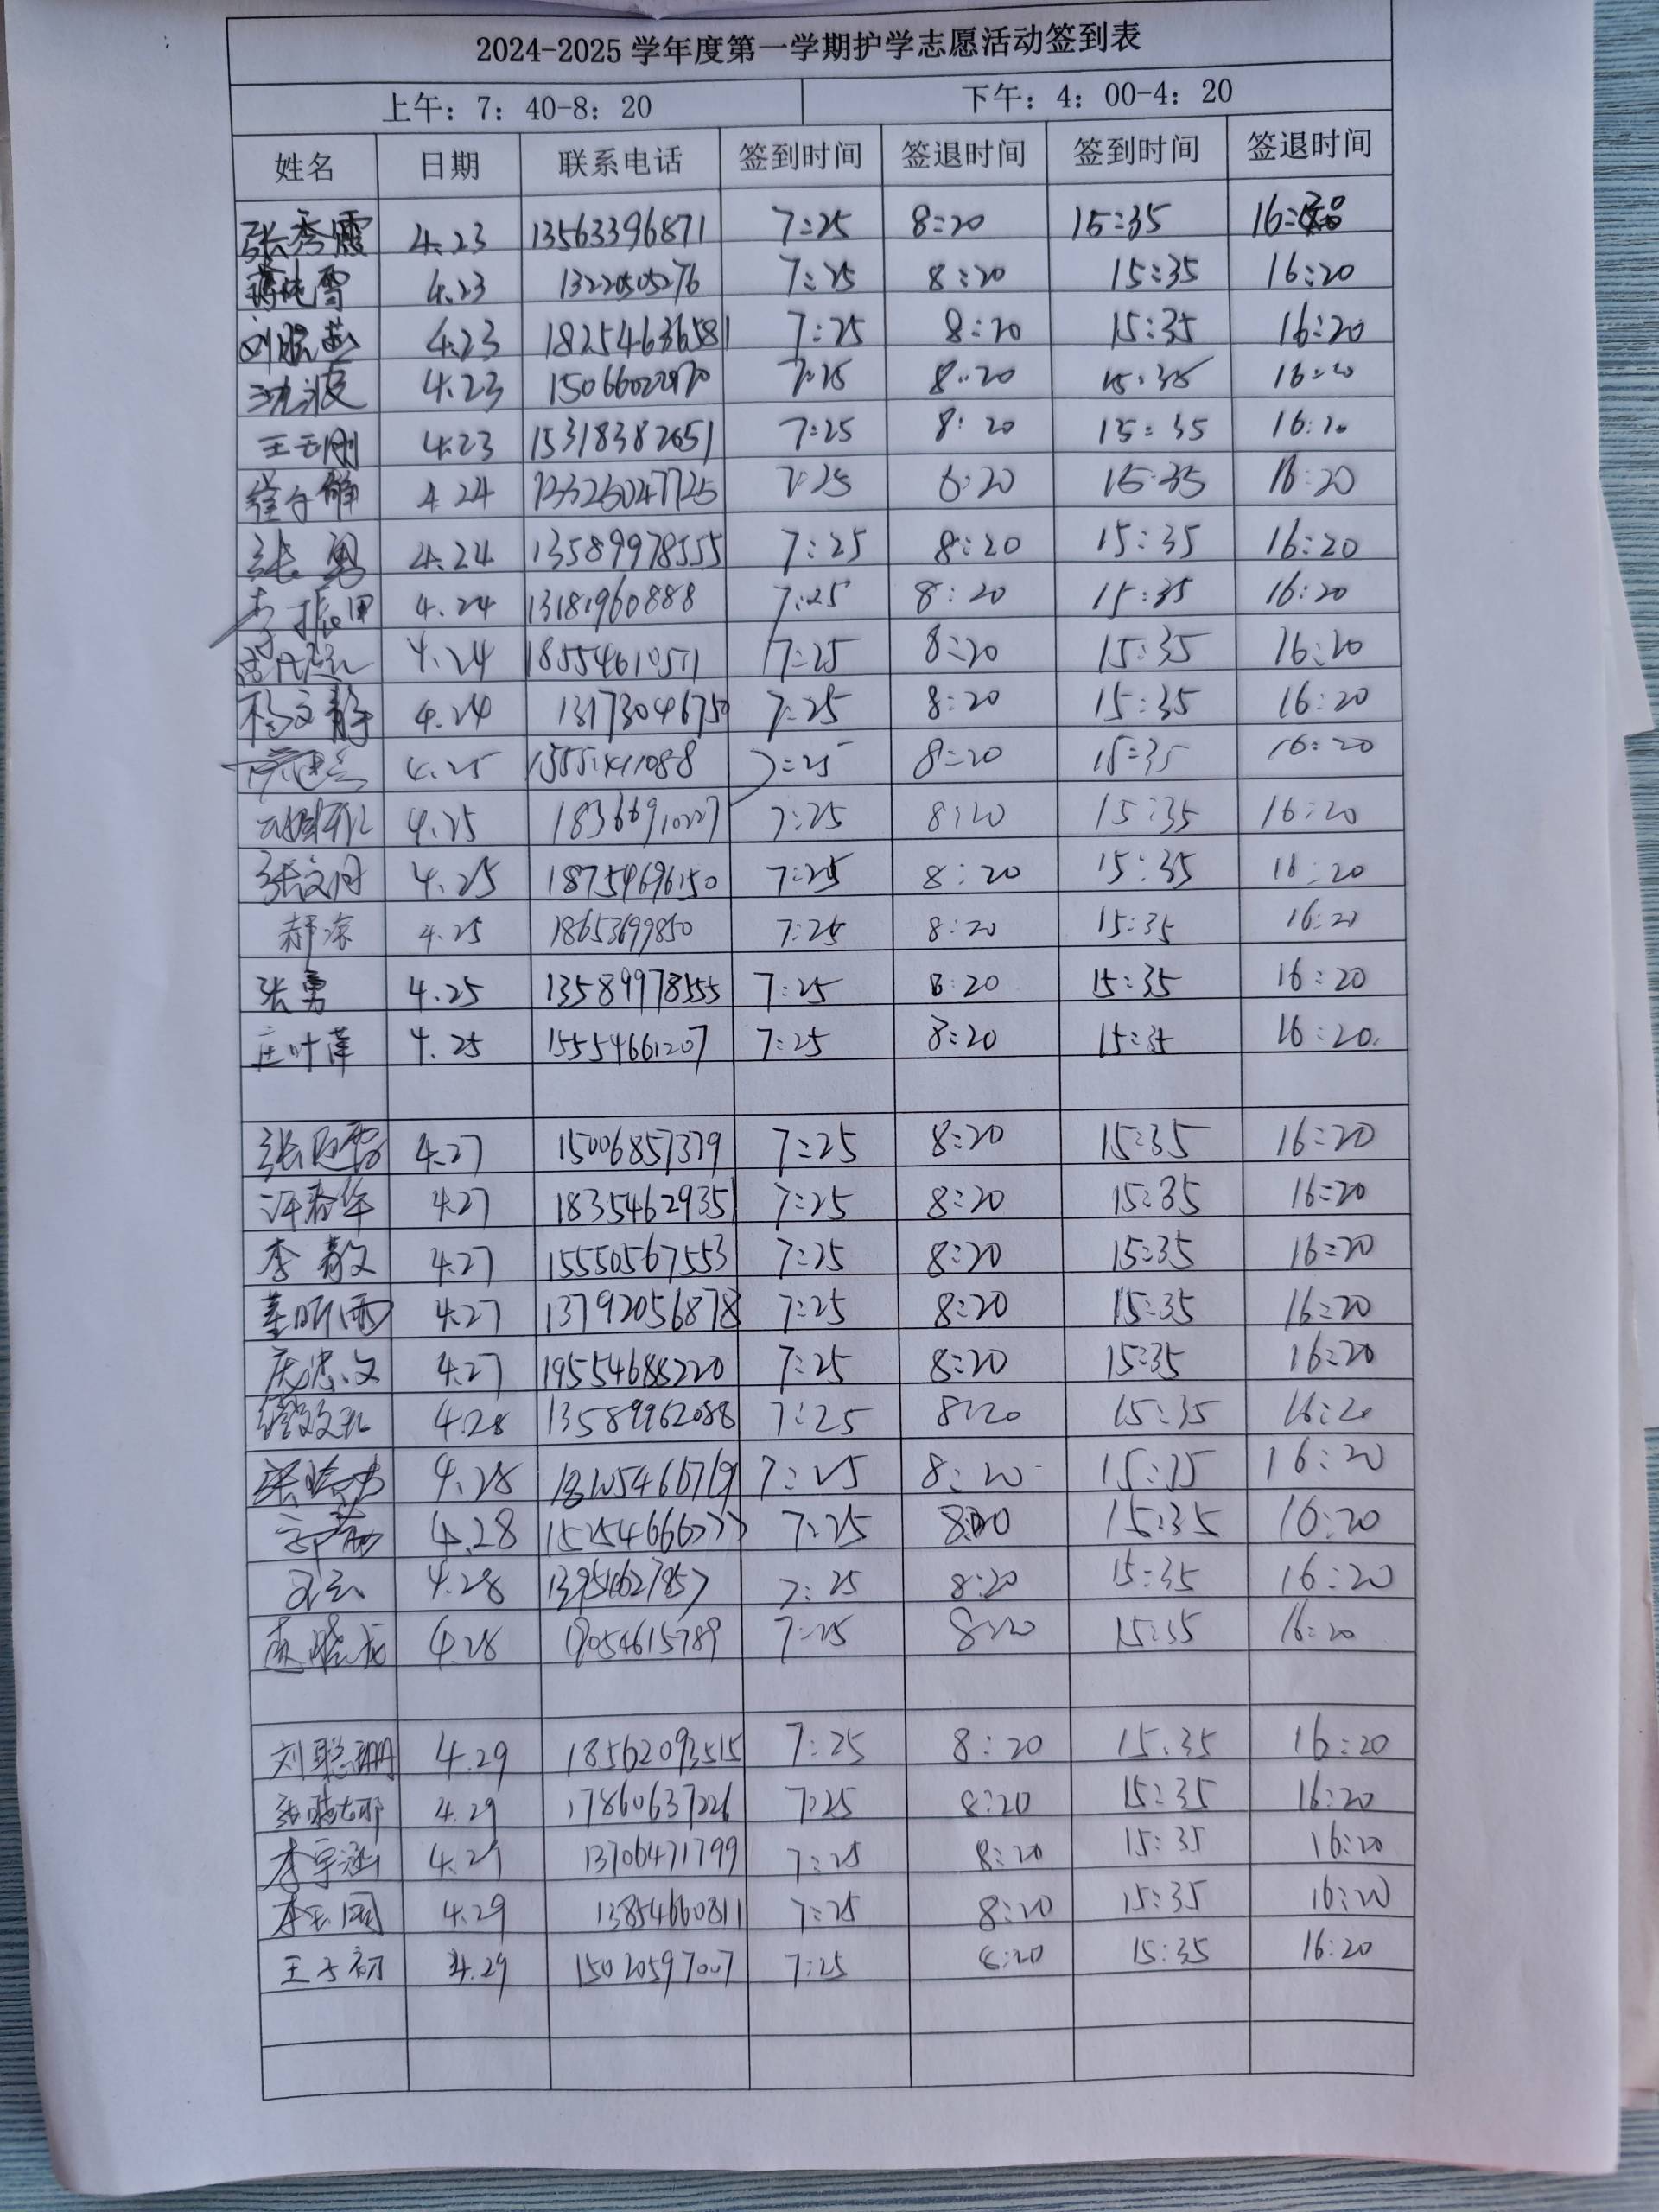 2024-2025学年度第一学期护学志愿活动签到表
上午：7：40-8：20 下午：4：00-4：20
姓名 日期 联系电话 签到时间 签退时间 签到时间 签退时间
张秀霞 4.23 13563396871 7:25 8:20 15:35 16:20
4.23 13220505276 7:25 8:20 15:35 16:20
4.23 18254636581 7:25 8:20 15:35 16:20
沈波 4.23 7:25 8:20 15:35 16:20
王玉刚 4.23 15318382651 7:25 8:20 15:35 16:20
4.24 7:25 8:20 15:35 16:20
张勇 4.24 13589978555 7:25 8:20 15:35 16:20
李振田 4.24 13181960888 7:25 8:20 15:35 16:20
4.24 18554610511 7:25 8:20 15:35 16:20
杨文静 4.24 13173046750 7:25 8:20 15:35 16:20
4.25 7:25 8:20 15:35 16:20
4.25 18366910227 7:25 8:20 15:35 16:20
张文丹 4.25 18754696150 7:25 8:20 15:35 16:20
郝凉 4.25 18653699850 7:25 8:20 15:35 16:20
张勇 4.25 13589978555 7:25 8:20 15:35 16:20
庄叶萍 4.25 15554661207 7:25 8:20 15:35 16:20.
4.27 15006857379 7:25 8:20 15:35 16:20
许春华 4.27 18354629351 7:25 8:20 15:35 16:20
李敬文 4.27 15550567553 7:25 8:20 15:35 16:20
董昕雨 4.27 13792056878 7:25 8:20 15:35 16:20
庞忠文 4.27 19554688220 7:25 8:20 15:35 16:20
4.28 13589962088 7:25 8:20 15:35 16:20
4.28 7:25 8:20 15:35 16:20
4.28 15254666777 7:25 8:20 15:35 16:20
4.28 13954627857 7:25 8:20 15:35 16:20
赵晓龙 4.28 19054615789 7:25 8:20 15:35 16:20
刘聪珊 4.29 18562093515 7:25 8:20 15.35 16:20
4.29 17860637226 7:25 8:20 15:35 16:20
李宇涵 4.29 13706471799 7:25 8:20 15:35 16:20
李玉国 4.29 13854660811 7:25 8:20 15:35 16:20
王子初 4.29 15020597007 7:25 8:20 15:35 16:20